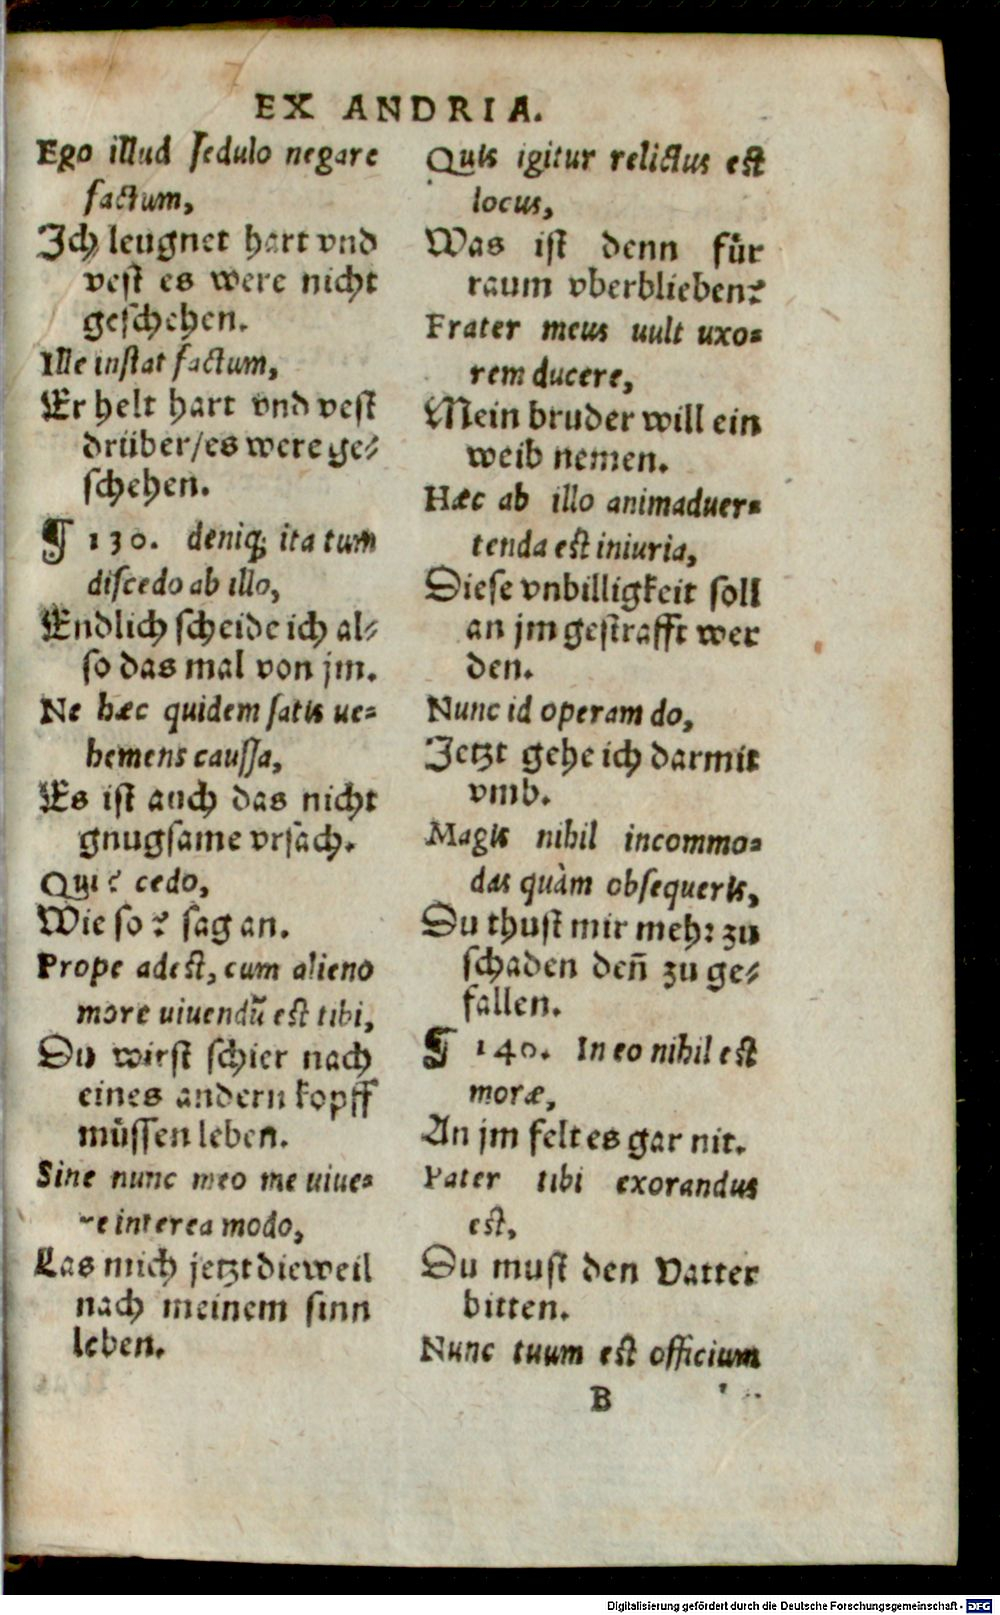 EX ANDRIA.
Ego illud ſedulo negare
factum,
Jch leugnet hart vnd
veſt es were nicht
geſchehen.
Ille inſtat factum,
Er helt hart vnd veſt
drüber/es were ge⸗
ſchehen.
¶ 130. deniq; ita tum
diſcedo ab illo,
Endlich ſcheide ich al⸗
ſo das mal von jm.
Ne hæc quidem ſatis ue⸗
hemens cauſſa,
Es iſt auch das nicht
gnugſame vrſach.
Qui? cedo,
Wie ſo? ſag an.
Prope adeſt, cum alieno
more uiuendũ eſt tibi,
Du wirſt ſchier nach
eines andern kopff
müſſen leben.
Sine nunc meo me uiue⸗
re interea modo,
Las mich jetzt dieweil
nach meinem ſinn
leben.
Quis igitur relictus eſt
locus,
Was iſt denn für
raum vberblieben?
Frater meus uult uxo⸗
rem ducere,
Mein bruder will ein
weib nemen.
Hæc ab illo animaduer⸗
tenda eſt iniuria,
Dieſe vnbilligkeit ſoll
an jm geſtrafft wer
den.
Nunc id operam do,
Jetzt gehe ich darmit
vmb.
Magis nihil incommo⸗
das quàm obſequeris,
Du thuſt mir mehr zu
ſchaden deñ zu ge⸗
fallen.
¶ 140. In eo nihil eſt
moræ,
An jm felt es gar nit.
Pater tibi exorandus
eſt,
Du muſt den Vatter
bitten.
Nunc tuum eſt officium
B
Digitalisierung gefördert durch die Deutsche Forschungsgemeinschaft - DFG